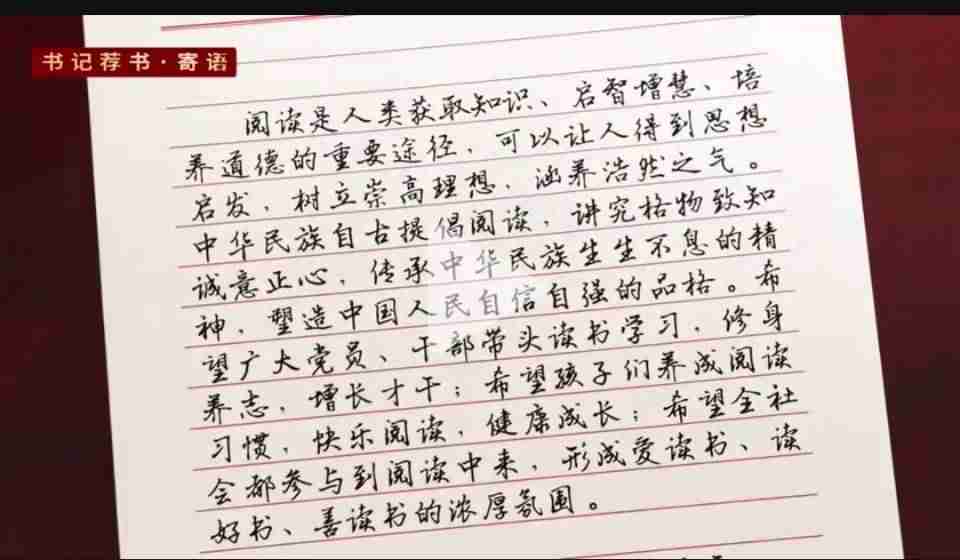 书记荐书·寄语
阅读是人类获取知识、启智增慧、培
养道德的重要途径，可以让人得到思想
启发，树立崇高理想，涵养浩然之气。
中华民族自古提倡阅读，讲究格物致知
诚意正心，传承中华民族生生不息的精
神，塑造中国人民自信自强的品格。希
望广大党员、干部带头读书学习，修身
养志，增长才干；希望孩子们养成阅读
习惯，快乐阅读，健康成长；希望全社
会都参与到阅读中来，形成爱读书、读
好书、善读书的浓厚氛围。